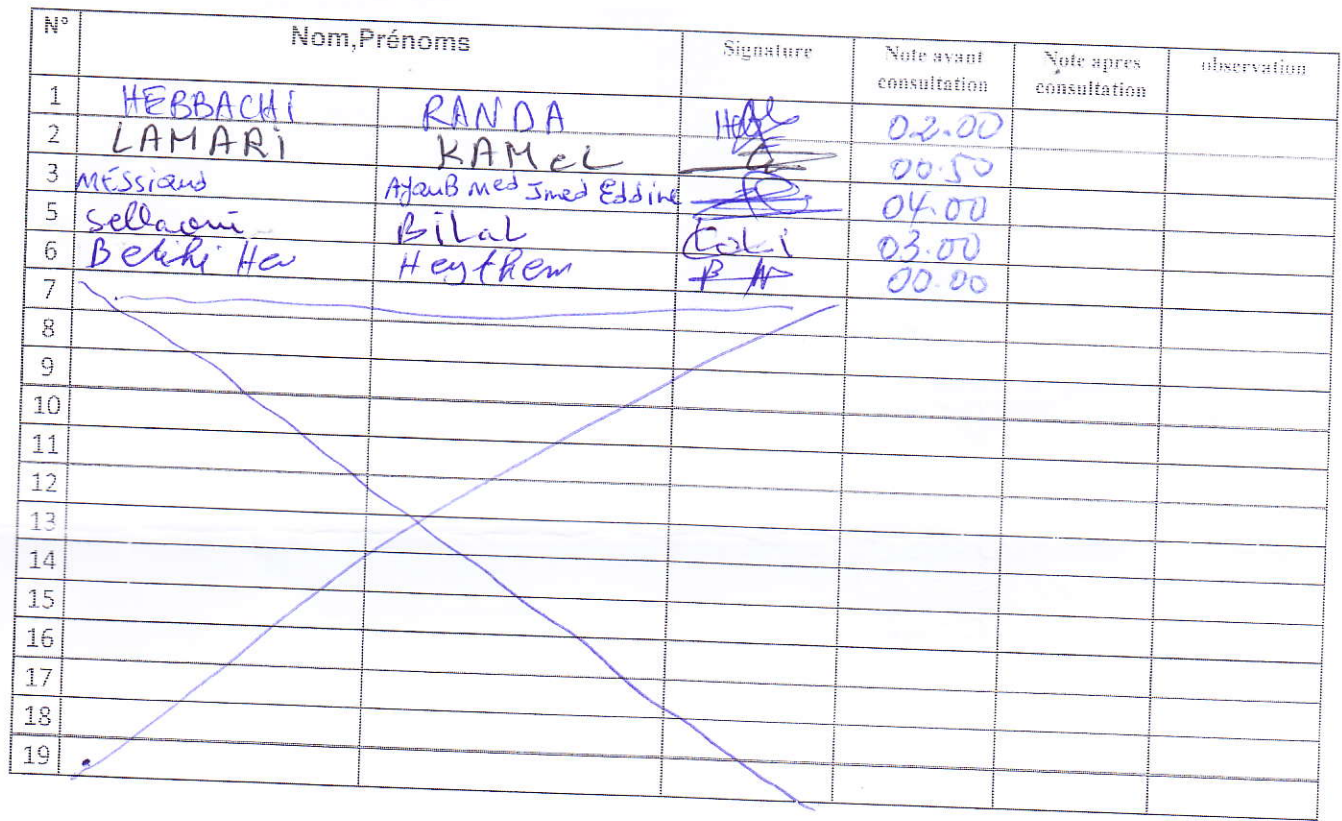 N° Nom,Prénoms Signature Note avant consultation Note apres consultation observation
1 HEBBACHi RANDA 02.00
2 LAMARi KAMeL 00.50
3 MESSiaud AyouB Med Imed Eddine 04.00
5 Sellaoui BiLaL 03.00
6 Heythem 00.00
7
8
9
10
11
12
13
14
15
16
17
18
19